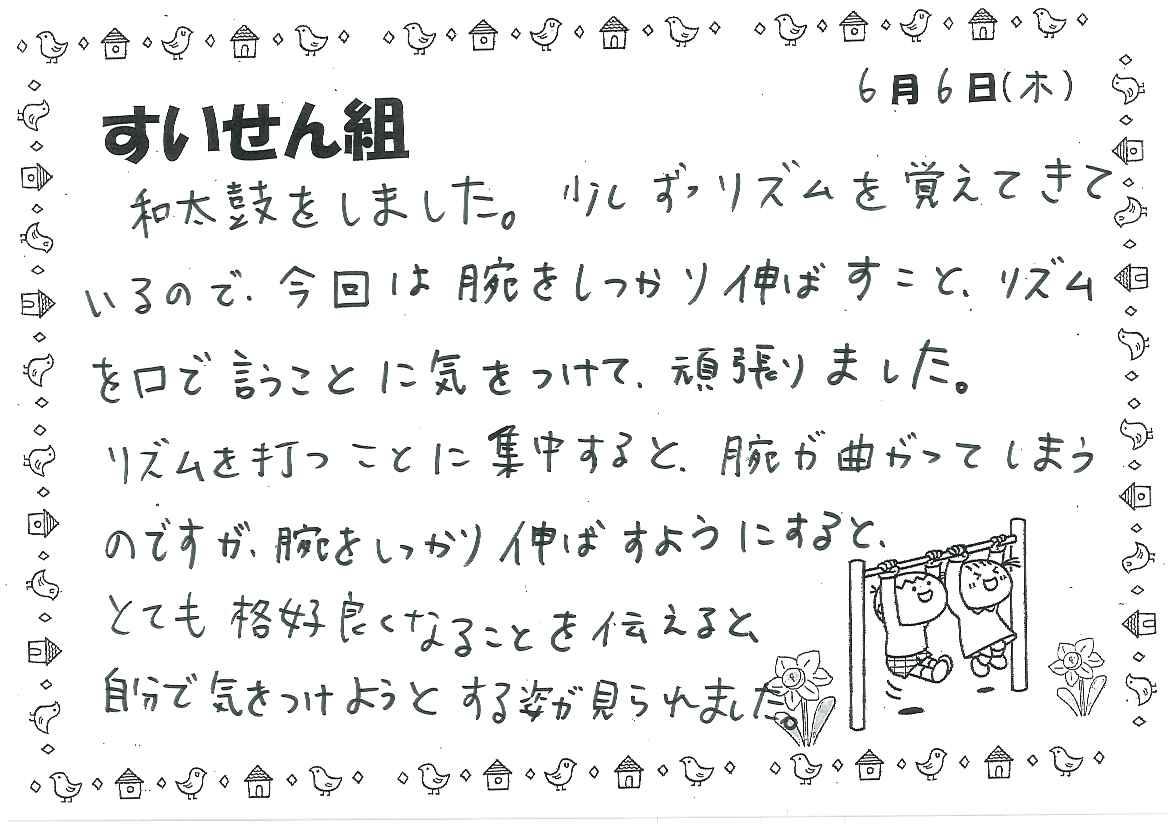 6月6日(木)
すいせん組
和太鼓をしました。少しずつリズムを覚えてきて
いるので、今回は腕をしっかり伸ばすこと、リズム
を口で言うことに気をつけて、頑張りました。
リズムを打つことに集中すると、腕が曲がってしまう
のですが、腕をしっかり伸ばすようにすると、
とても格好良くなることを伝えると、
自分で気をつけようとする姿が見られました。